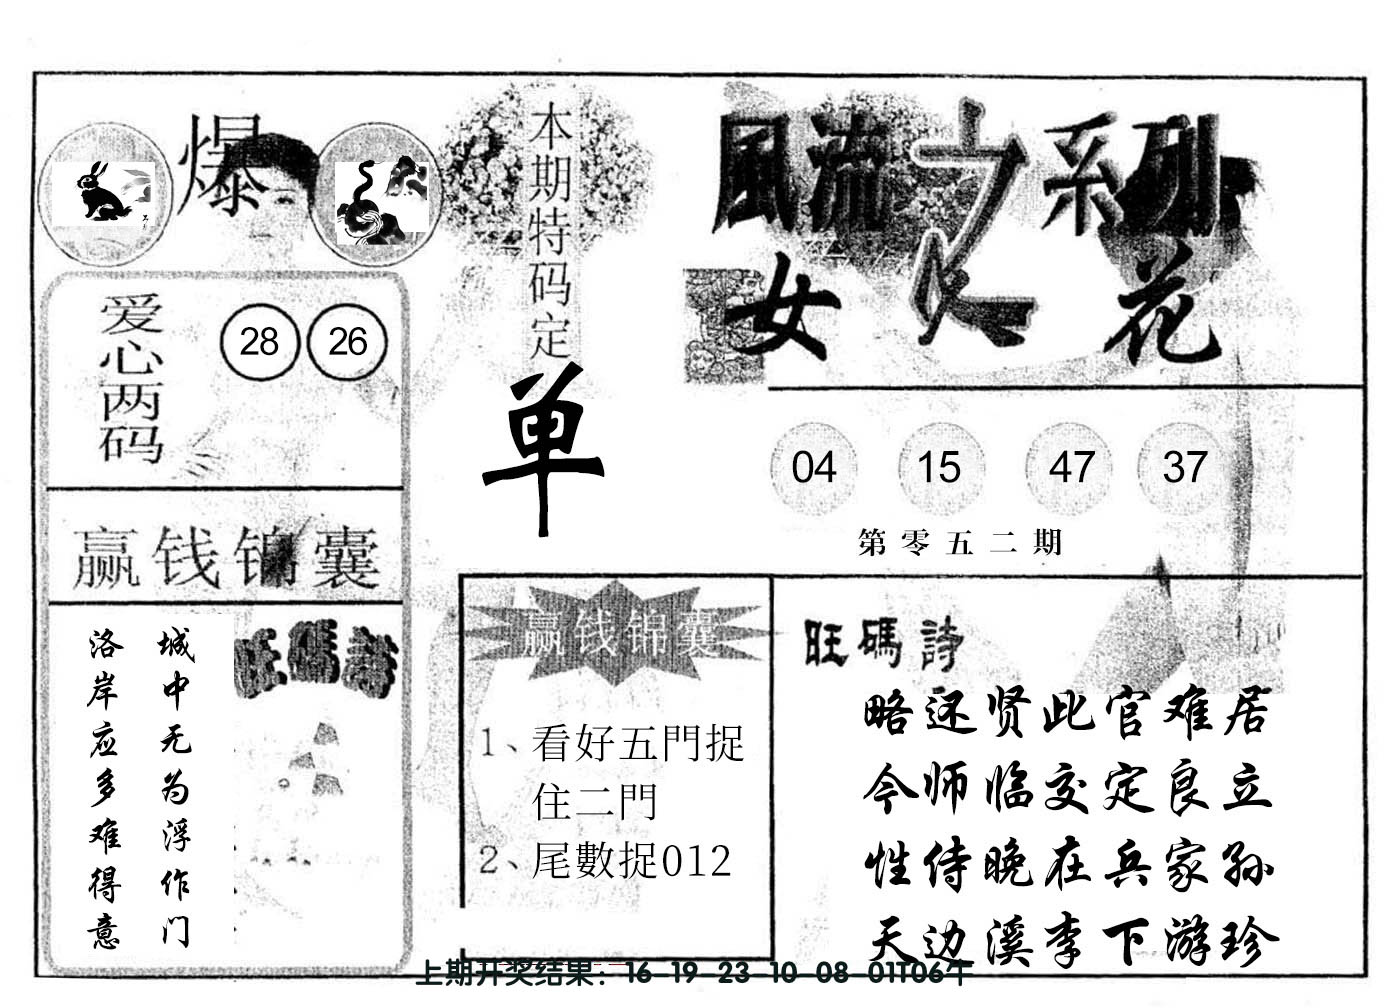 爆
爱心两码
28 26
赢钱锦囊
城中无为浮作门
洛岸应多难得意
旺碼詩
本期特码定
单
赢钱锦囊
1、看好五門捉
住二門
2、尾數捉012
風流之系列
女人花
04 15 47 37
第零五二期
旺碼詩
略还贤此官难居
今师临交定良立
性侍晚在兵家孙
天边溪李下游珍
上期开奖结果：16-19-23-10-08-01T06午